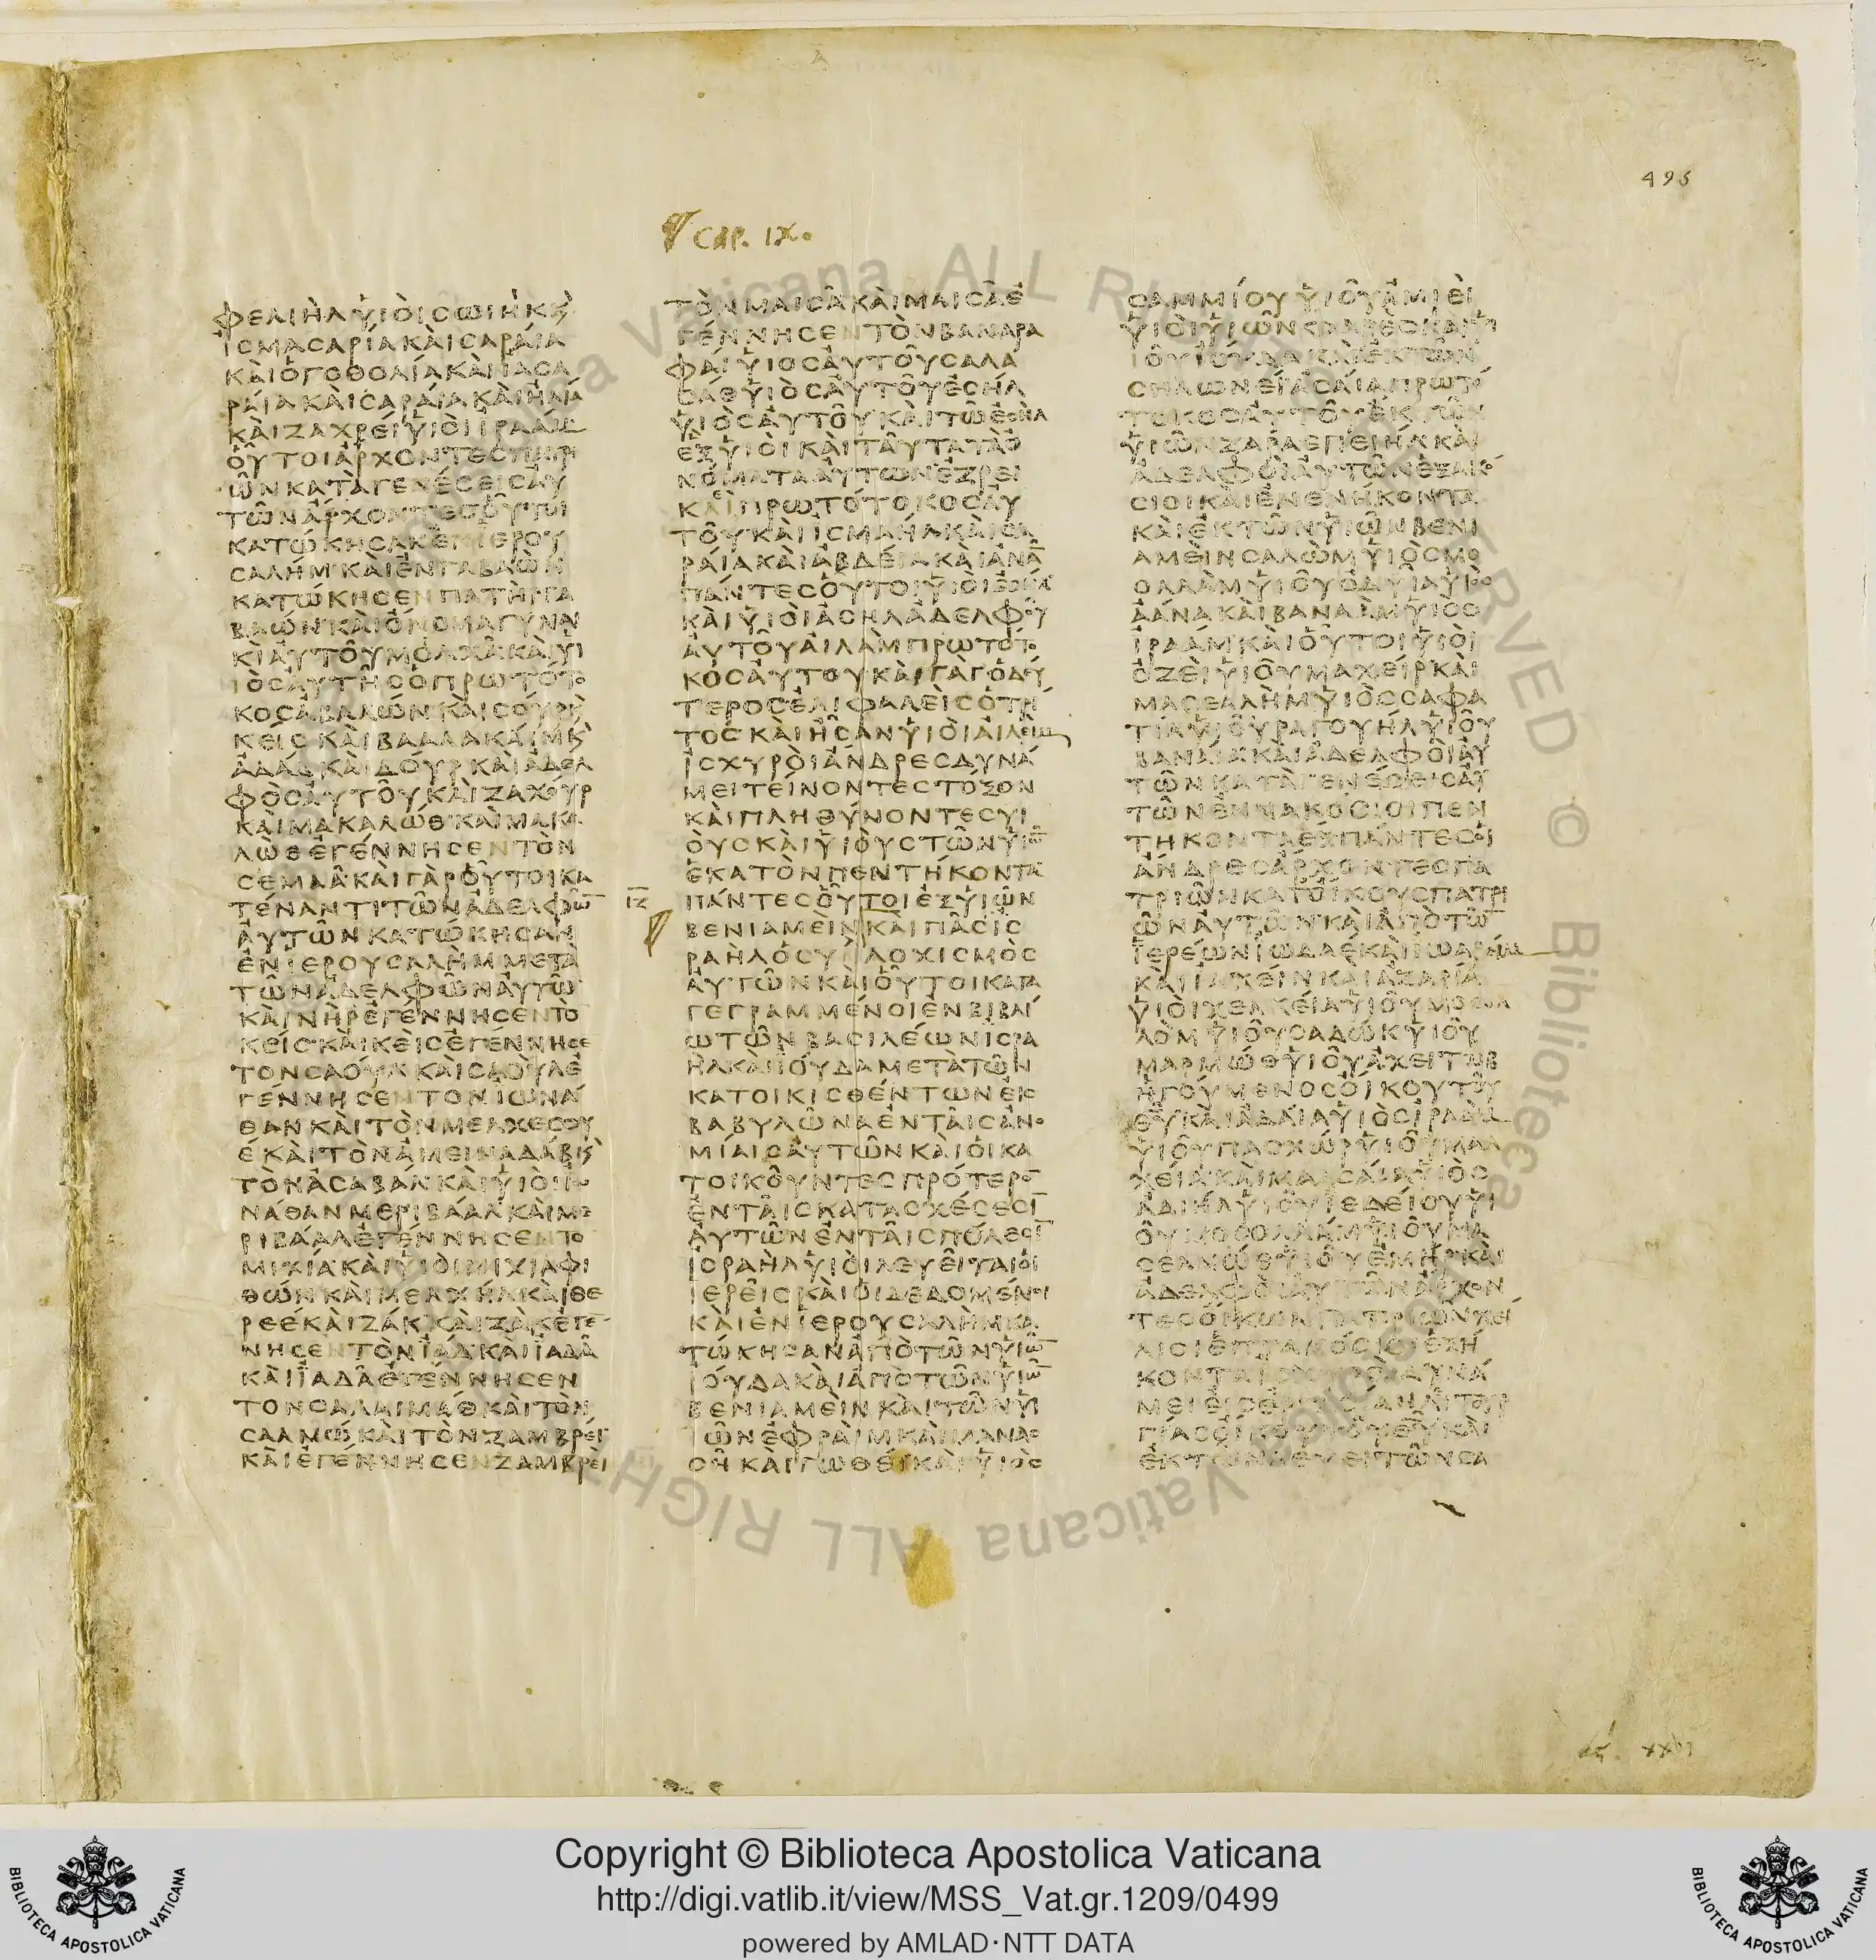 495
CAP. IX.
ΦΕΛΙΗΛΥΙΟΙСΩΙΗΚ
ΙСΜΑСΑΡΙΑΚΑΙСΑΡΑΙΑ
ΚΑΙΟΓΟΘΟΛΙΑΚΑΙΙΑСΑ
ΡΑΙΑΚΑΙСΑΡΑΙΑΚΑΙΗΛΙΑ
ΚΑΙΖΑΧΡΕΙΥΙΟΙΙΡΑΑΜ
ΟΥΤΟΙΑΡΧΟΝΤΕСΠΑΤΡΙ
ΩΝΚΑΤΑΓΕΝΕСΕΙСΑΥ
ΤΩΝΑΡΧΟΝΤΕСΟΥΤΟΙ
ΚΑΤΩΚΗСΑΝΕΝΙΕΡΟΥ
СΑΛΗΜΚΑΙΕΝΓΑΒΑΩΝ
ΚΑΤΩΚΗСΕΝΠΑΤΗΡΓΑ
ΒΑΩΝΚΑΙΟΝΟΜΑΓΥΝΑΙ
ΚΙΑΥΤΟΥΜΟΛΧΑΚΑΙΥΙ
ΙΟСΑΥΤΗСΟΠΡΩΤΟΤΟ
ΚΟСΑΒΑΛΩΝΚΑΙСΟΥΡ
ΚΕΙСΚΑΙΒΑΑΛΑΚΑΙΜ
ΑΔΑΔΚΑΙΔΟΥΡΚΑΙΑΔΕΛ
ΦΟСΑΥΤΟΥΚΑΙΖΑΧΟΥΡ
ΚΑΙΜΑΚΑΛΩΘΚΑΙΜΑΚΑ
ΛΩΘΕΓΕΝΝΗСΕΝΤΟΝ
СΕΜΑΑΚΑΙΓΑΡΟΥΤΟΙΚΑ
ΤΕΝΑΝΤΙΤΩΝΑΔΕΛΦΩ
ΑΥΤΩΝΚΑΤΩΚΗСΑΝ
ΕΝΙΕΡΟΥСΑΛΗΜΜΕΤΑ
ΤΩΝΑΔΕΛΦΩΝΑΥΤΩ
ΚΑΙΝΗΡΕΓΕΝΝΗСΕΝΤΟ
ΚΕΙСΚΑΙΚΕΙСΕΓΕΝΝΗСΕ
ΤΟΝСΑΟΥΛΚΑΙСΑΟΥΛΕ
ΓΕΝΝΗСΕΝΤΟΝΙΩΝΑ
ΘΑΝΚΑΙΤΟΝΜΕΛΧΕСΟΥ
ΕΚΑΙΤΟΝΑΜΕΙΝΑΔΑΒΚ
ΤΟΝΑСΑΒΑΛΚΑΙΥΙΟΙΙΩ
ΝΑΘΑΝΜΕΡΙΒΑΑΛΚΑΙΜΕ
ΡΙΒΑΑΛΕΓΕΝΝΗСΕΝΤΟ
ΜΙΧΙΑΚΑΙΥΙΟΙΜΙΧΙΑΦΙ
ΘΩΝΚΑΙΜΕΛΧΗΛΚΑΙΘΕ
ΡΕΕΚΑΙΖΑΚΚΑΙΖΑΚΕΓΕ
ΝΗСΕΝΤΟΝΙΑΔΚΑΙΙΑΔΑ
ΚΑΙΙΑΔΑΕΓΕΝΝΗСΕΝ
ΤΟΝСΑΛΑΙΜΑΘΚΑΙΤΟΝ
СΑΛΜΩΚΑΙΤΟΝΖΑΜΒΡΕΙ
ΚΑΙΕΓΕΝΝΗСΕΝΖΑΜΒΡΕΙ
ΤΟΝΜΑΙСΑΚΑΙΜΑΙСΑΕ
ΓΕΝΝΗСΕΝΤΟΝΒΑΝΑΡΑ
ΦΑΙΥΙΟСΑΥΤΟΥСΑΛΑ
СΑΘΥΙΟСΑΥΤΟΥΕСΗΛ
ΥΙΟСΑΥΤΟΥΚΑΙΤΩΕСΗΛ
ΕΞΥΙΟΙΚΑΙΤΑΥΤΑΤΑΟ
ΝΟΜΑΤΑΑΥΤΩΝΕΖΡΕΙ
ΚΑΙΠΡΩΤΟΤΟΚΟСΑΥ
ΤΟΥΚΑΙΙСΜΑΗΛΚΑΙСΑ
ΡΑΙΑΚΑΙΑΒΔΕΙΑΚΑΙΑΝΑ
ΠΑΝΤΕСΟΥΤΟΙΥΙΟΙΕСΗΛ
ΚΑΙΥΙΟΙΑСΗΛΑΔΕΛΦΟΥ
ΑΥΤΟΥΑΙΛΑΜΠΡΩΤΟΤΟ
ΚΟСΑΥΤΟΥΚΑΙΓΑΓΟΔΥ
ΤΕΡΟСΕΛΙΦΑΛΕΙСΟΤΡΙ
ΤΟСΚΑΙΗСΑΝΥΙΟΙΑΙΛΕΙΜ
ΙСΧΥΡΟΙΑΝΔΡΕСΔΥΝΑ
ΜΕΙΤΕΙΝΟΝΤΕСΤΟΞΟΝ
ΚΑΙΠΛΗΘΥΝΟΝΤΕСΥΙ
ΟΥСΚΑΙΥΙΟΥСΤΩΝΥΙΩ
ΕΚΑΤΟΝΠΕΝΤΗΚΟΝΤΑ
ΙΖ ΠΑΝΤΕСΟΥΤΟΙΕΞΥΙΩΝ
ΒΕΝΙΑΜΕΙΝΚΑΙΠΑСΙС
ΡΑΗΛΟСΥΛΛΟΧΙСΜΟС
ΑΥΤΩΝΚΑΙΟΥΤΟΙΚΑΤΑ
ΓΕΓΡΑΜΜΕΝΟΙΕΝΒΙΒΛΙ
ΩΤΩΝΒΑСΙΛΕΩΝΙСΡΑ
ΗΛΚΑΙΙΟΥΔΑΜΕΤΑΤΩΝ
ΚΑΤΟΙΚΙСΘΕΝΤΩΝΕΚ
ΒΑΒΥΛΩΝΑΕΝΤΑΙСΑΝΟ
ΜΙΑΙСΑΥΤΩΝΚΑΙΟΙΚΑ
ΤΟΙΚΟΥΝΤΕСΠΡΟΤΕΡΟ
ΕΝΤΑΙСΚΑΤΑСΧΕСΕСΙ
ΑΥΤΩΝΕΝΤΑΙСΠΟΛΕСΙ
ΙСΡΑΗΛΥΙΟΙΛΕΥΕΙΤΑΙΟΙ
ΙΕΡΕΙСΚΑΙΟΙΔΕΔΟΜΕΝΟΙ
ΚΑΙΕΝΙΕΡΟΥСΑΛΗΜΚΑ
ΤΩΚΗСΑΝΑΠΟΤΩΝΥΙΩ
ΙΟΥΔΑΚΑΙΑΠΟΤΩΝΥΙΩ
ΒΕΝΙΑΜΕΙΝΚΑΙΤΩΝΥΙ
ΩΝΕΦΡΑΙΜΚΑΙΜΑΝΑС
СΗΚΑΙΓΩΘΕΙΚΑΙΥΙΟС
СΑΜΜΙΟΥΥΙΟΥΑΜΙΕΙ
ΥΙΟΙΥΙΩΝΦΑΡΕСΚΑΙΥΙ
ΙΟΥΙΟΥΔΑΚΑΙΕΚΤΩΝ
СΗΛΩΝΕΙΑСΑΙΑΠΡΩΤΟ
ΤΟΚΟСΑΥΤΟΥΕΚΤΩΝ
ΥΙΩΝΖΑΡΑΕΠΕΙΗΛΚΑΙ
ΑΔΕΛΦΟΙΑΥΤΩΝΕΞΑΚΟ
СΙΟΙΚΑΙΕΝΕΝΗΚΟΝΤΑ
ΚΑΙΕΚΤΩΝΥΙΩΝΒΕΝΙ
ΑΜΕΙΝСΑΛΩΜΥΙΟСΜΟ
ΟΛΛΑΜΥΙΟΥΟΔΥΙΑΥΙΟΥ
ΑΑΝΑΚΑΙΒΑΝΑΑΜΥΙΟС
ΙΡΑΑΜΚΑΙΟΥΤΟΙΥΙΟΙ
ΟΖΕΙΥΙΟΥΜΑΧΕΙΡΚΑΙ
ΜΑСΕΑΛΗΜΥΙΟССΑΦΑ
ΤΙΑΥΙΟΥΡΑΓΟΥΗΛΥΙΟΥ
ΒΑΝΑΙΑΚΑΙΑΔΕΛΦΟΙΑΥ
ΤΩΝΚΑΤΑΓΕΝΕСΕΙСΑΥ
ΤΩΝΕΝΝΑΚΟСΙΟΙΠΕΝ
ΤΗΚΟΝΤΑΕΞΠΑΝΤΕСΟΙ
ΑΝΔΡΕСΑΡΧΟΝΤΕСΠΑ
ΤΡΙΩΝΚΑΤΟΙΚΟΥСΠΑΤΡΙ
ΩΝΑΥΤΩΝΚΑΙΑΠΟΤΩ
ΙΕΡΕΩΝΙΩΔΑΕΚΑΙΙΩΑΡΕΙΜ
ΚΑΙΙΑΧΕΙΝΚΑΙΑΖΑΡΙΑ
ΥΙΟΙΧΕΛΚΕΙΑΥΙΟΥΜΟСΟΛ
ΛΟΜΥΙΟΥСΑΔΩΚΥΙΟΥ
ΜΑΡΜΩΘΥΙΟΥΑΧΕΙΤΩΒ
ΗΓΟΥΜΕΝΟСΟΙΚΟΥΤΟΥ
ΘΥΚΑΙΑΔΑΙΑΥΙΟСΙΡΑΑΜ
ΥΙΟΥΠΑСΧΩΡΥΙΟΥΜΑΛ
ΧΕΙΑΚΑΙΜΑΑСΑΙΑΥΙΟС
ΑΔΙΗΛΥΙΟΥΙΕΔΕΙΟΥΥΙ
ΟΥΜΟСΟΛΛΑΜΥΙΟΥΜΑ
СΕΛΜΩΘΥΙΟΥΕΜΗΡΚΑΙ
ΑΔΕΛΦΟΙΑΥΤΩΝΑΡΧΟΝ
ΤΕСΟΙΚΩΝΠΑΤΡΙΩΝΧΕΙ
ΛΙΟΙΕΠΤΑΚΟСΙΟΙΕΞΗ
ΚΟΝΤΑΙСΧΥΡΟΙΔΥΝΑ
ΜΕΙΕΙСΕΡΓΑСΙΑΝΛΕΙΤΟΥΡ
ΓΙΑСΟΙΚΟΥΤΟΥΘΥΚΑΙ
ΕΚΤΩΝΛΕΥΕΙΤΩΝСΑ
Copyright © Biblioteca Apostolica Vaticana
http://digi.vatlib.it/view/MSS_Vat.gr.1209/0499
powered by AMLAD·NTT DATA
BIBLIOTECA APOSTOLICA VATICANA
BIBLIOTECA APOSTOLICA VATICANA